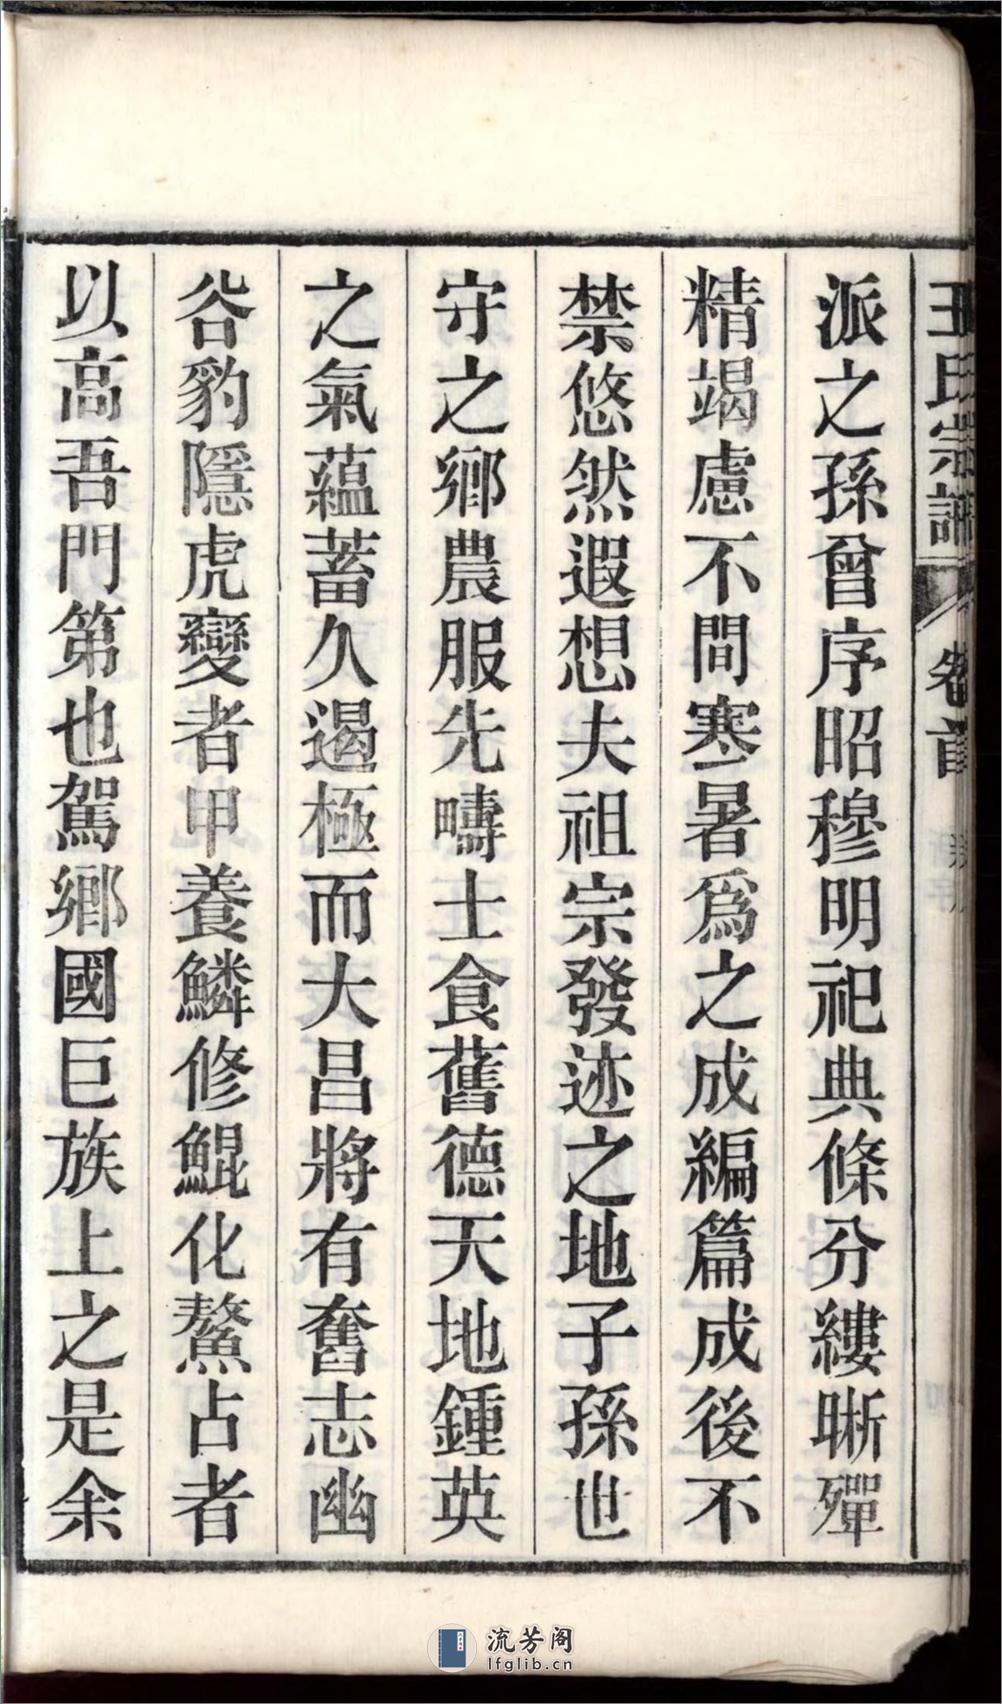 王氏宗譜
卷首
派之孫曾序昭穆明祀典條分縷晰殫
精竭慮不間寒暑爲之成編篇成後不
禁悠然遐想夫祖宗發迹之地子孫世
守之鄉農服先疇士食舊德天地鍾英
之氣蘊蓄久遏極而大昌將有奮志幽
谷豹隱虎變者甲養鱗修鯤化鰲占者
以高吾門第也駕鄉國巨族上之是余
流芳阁
lfglib.cn